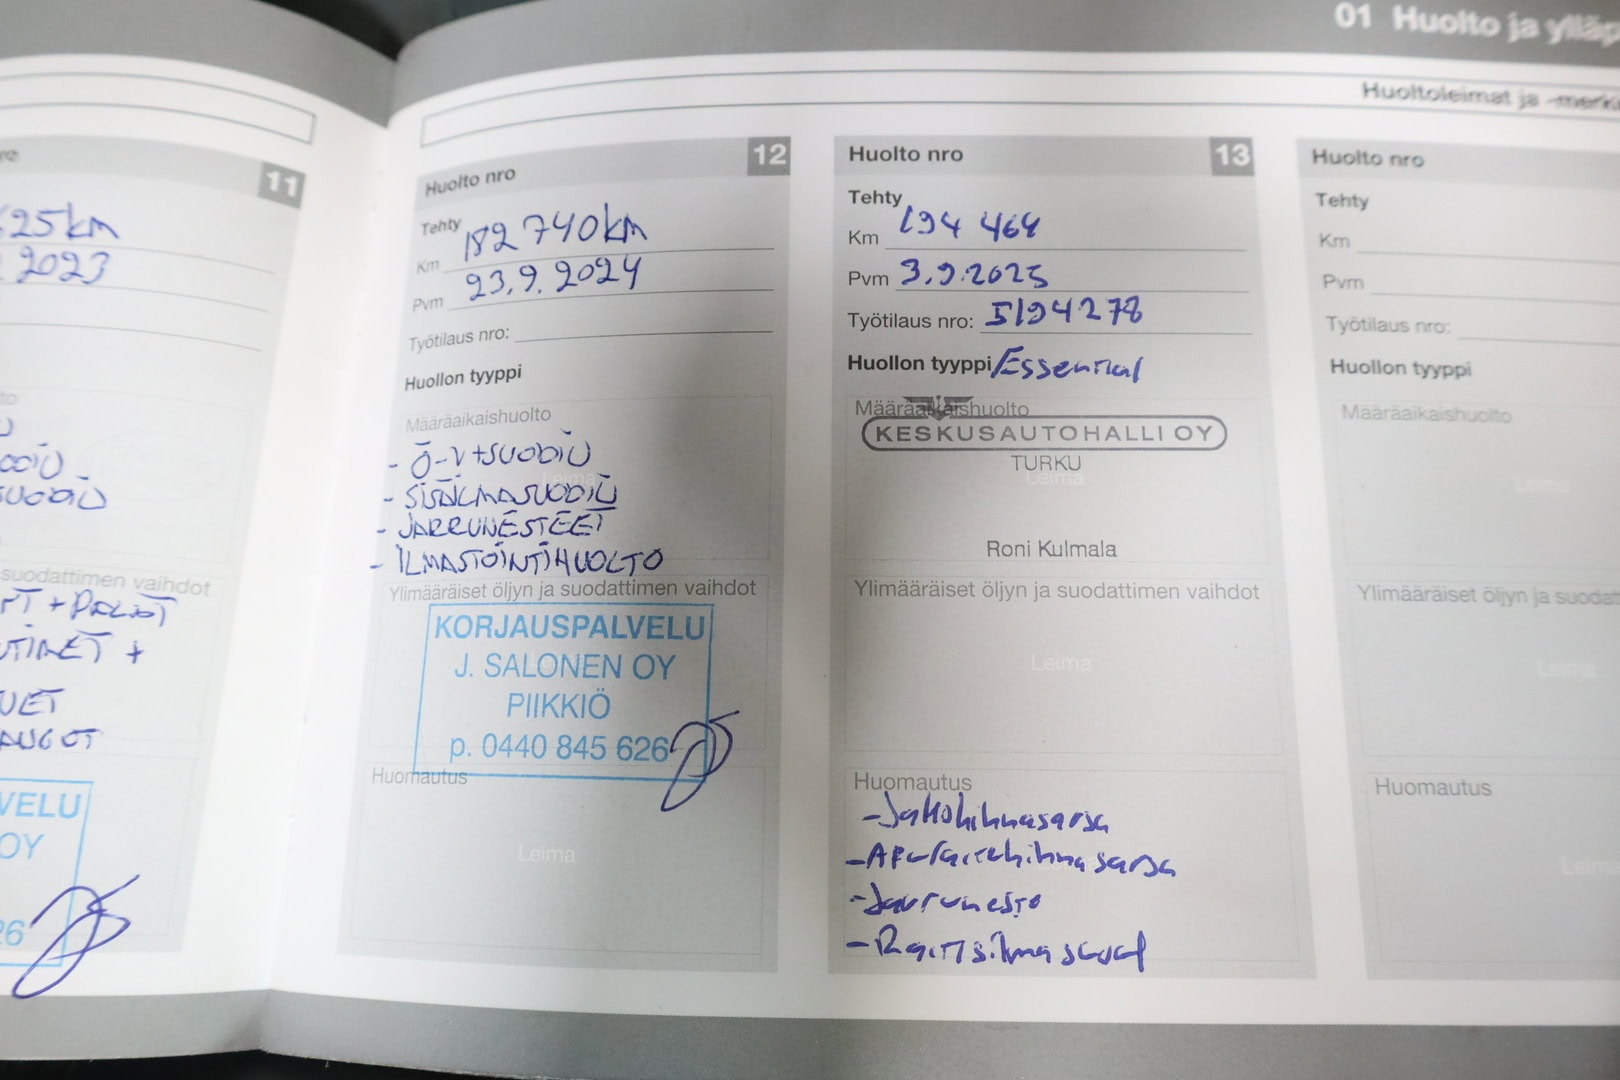 01 Huolto ja ylläp
Huoltoleimat ja -merki
11
25km
2023
suodattimen vaihdot
VELU
OY
26
Huolto nro 12
Tehty
Km 182 740km
Pvm 23.9.2024
Työtilaus nro:
Huollon tyyppi
Määräaikaishuolto
- Ö-V+SUODIN
Leima
- SISÄILMASUODIN
- JARRUNESTEET
- ILMASTOINTIHUOLTO
Ylimääräiset öljyn ja suodattimen vaihdot
KORJAUSPALVELU
J. SALONEN OY
PIIKKIÖ
p. 0440 845 626
Huomautus
Leima
Huolto nro 13
Tehty
Km 194 464
Pvm 3.9.2025
Työtilaus nro: 5194278
Huollon tyyppi /Essential
Määräaikaishuolto
KESKUSAUTOHALLI OY
TURKU
Leima
Roni Kulmala
Ylimääräiset öljyn ja suodattimen vaihdot
Leima
Huomautus
-Jakohihnasarja
-Apulaitehihnasarja
-Jarruneste
-Raitisilmasuod
Huolto nro
Tehty
Km
Pvm
Työtilaus nro:
Huollon tyyppi
Määräaikaishuolto
Leima
Ylimääräiset öljyn ja suodat
Leima
Huomautus
Leima